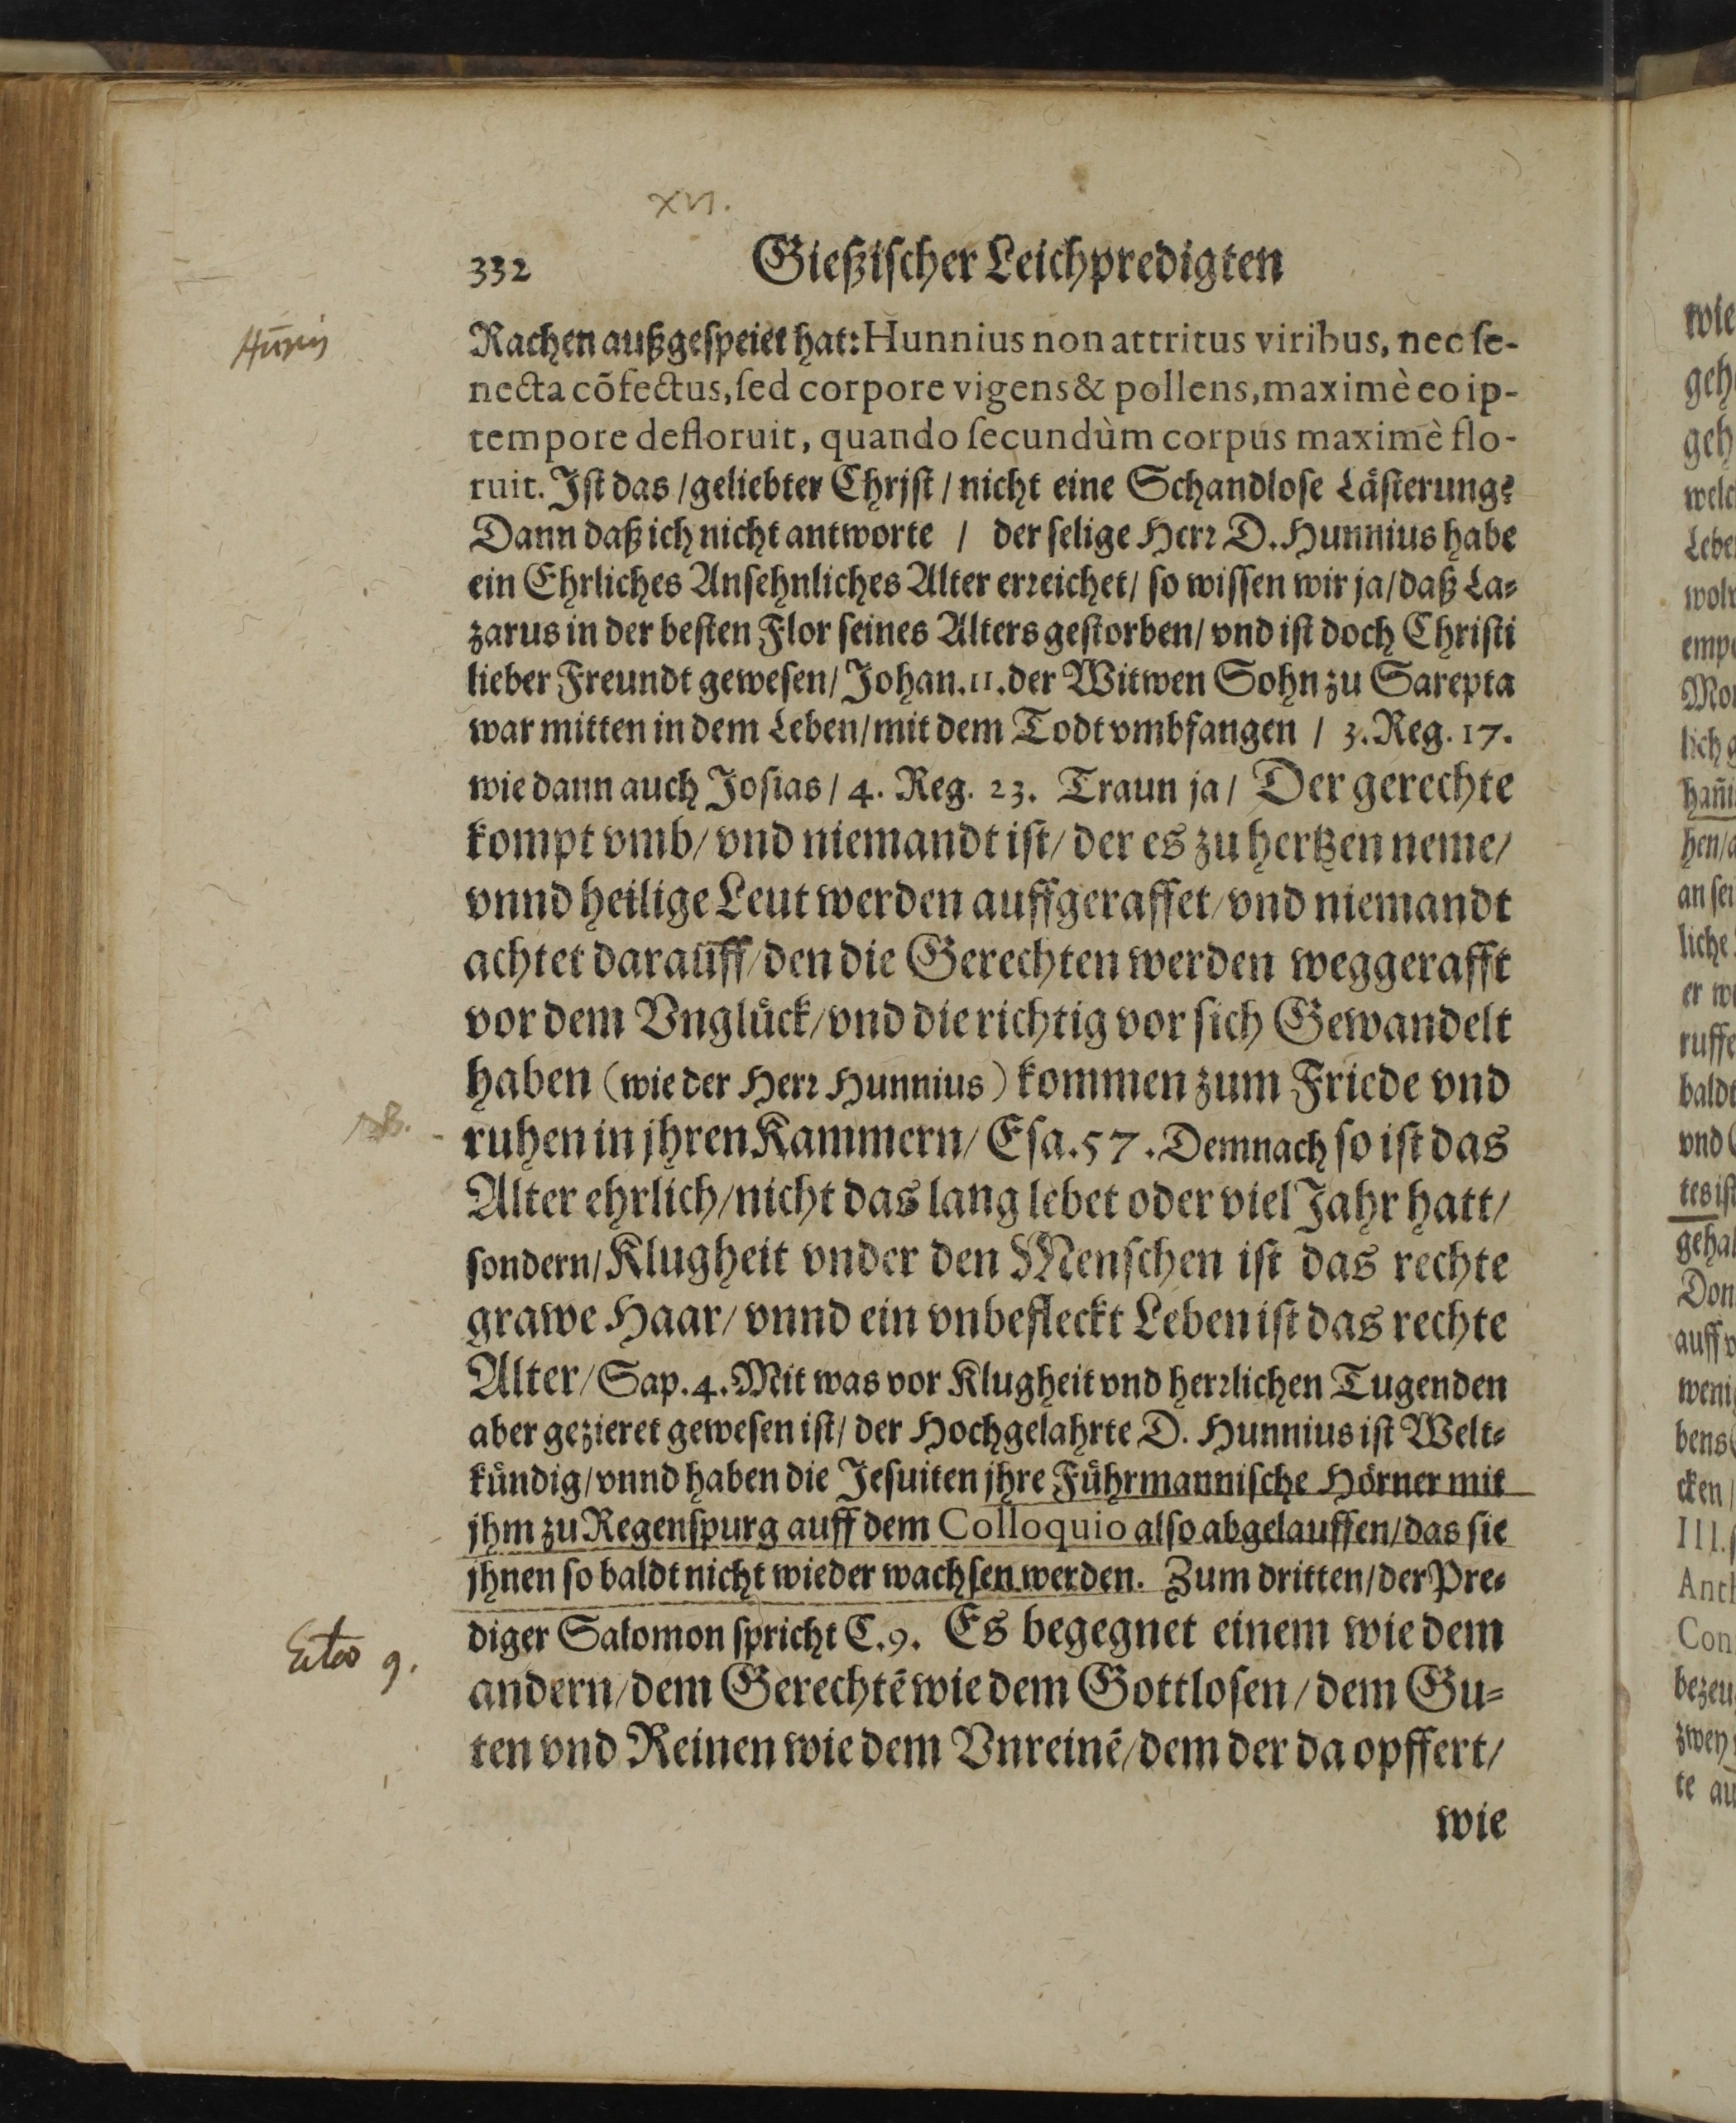 XVI.
332 Gießischer Leichpredigten
Rachen außgespeiet hat: Hunnius non attritus viribus, nec se-
necta cõfectus, sed corpore vigens & pollens, maximè eo ip-
tempore defloruit, quando secundùm corpus maximè flo-
ruit. Ist das / geliebter Christ / nicht eine Schandlose Lästerung?
Dann daß ich nicht antworte / der selige Herr D. Hunnius habe
ein Ehrliches Ansehnliches Alter erreichet / so wissen wir ja / daß La-
zarus in der besten Flor seines Alters gestorben / vnd ist doch Christi
lieber Freundt gewesen / Johan. 11. der Witwen Sohn zu Sarepta
war mitten in dem Leben / mit dem Todt vmbfangen / 3. Reg. 17.
wie dann auch Josias / 4. Reg. 23. Traun ja / Der gerechte
kompt vmb / vnd niemandt ist / der es zu hertzen neme /
vnnd heilige Leut werden auffgeraffet / vnd niemandt
achtet darauff / den die Gerechten werden weggerafft
vor dem Vnglück / vnd die richtig vor sich Gewandelt
haben (wie der Herr Hunnius) kommen zum Friede vnd
NB.
ruhen in jhren Kammern / Esa. 57. Demnach so ist das
Alter ehrlich / nicht das lang lebet oder viel Jahr hatt /
sondern / Klugheit vnder den Menschen ist das rechte
grawe Haar / vnnd ein vnbefleckt Leben ist das rechte
Alter / Sap. 4. Mit was vor Klugheit vnd herrlichen Tugenden
aber gezieret gewesen ist / der Hochgelahrte D. Hunnius ist Welt-
kündig / vnnd haben die Jesuiten jhre Führmannische Hörner mit
jhm zu Regenspurg auff dem Colloquio also abgelauffen / das sie
jhnen so baldt nicht wieder wachsen werden. Zum dritten / der Pre-
diger Salomon spricht C. 9. Es begegnet einem wie dem
andern / dem Gerechtẽ wie dem Gottlosen / dem Gu-
ten vnd Reinen wie dem Vnreinẽ / dem der da opffert /
wie